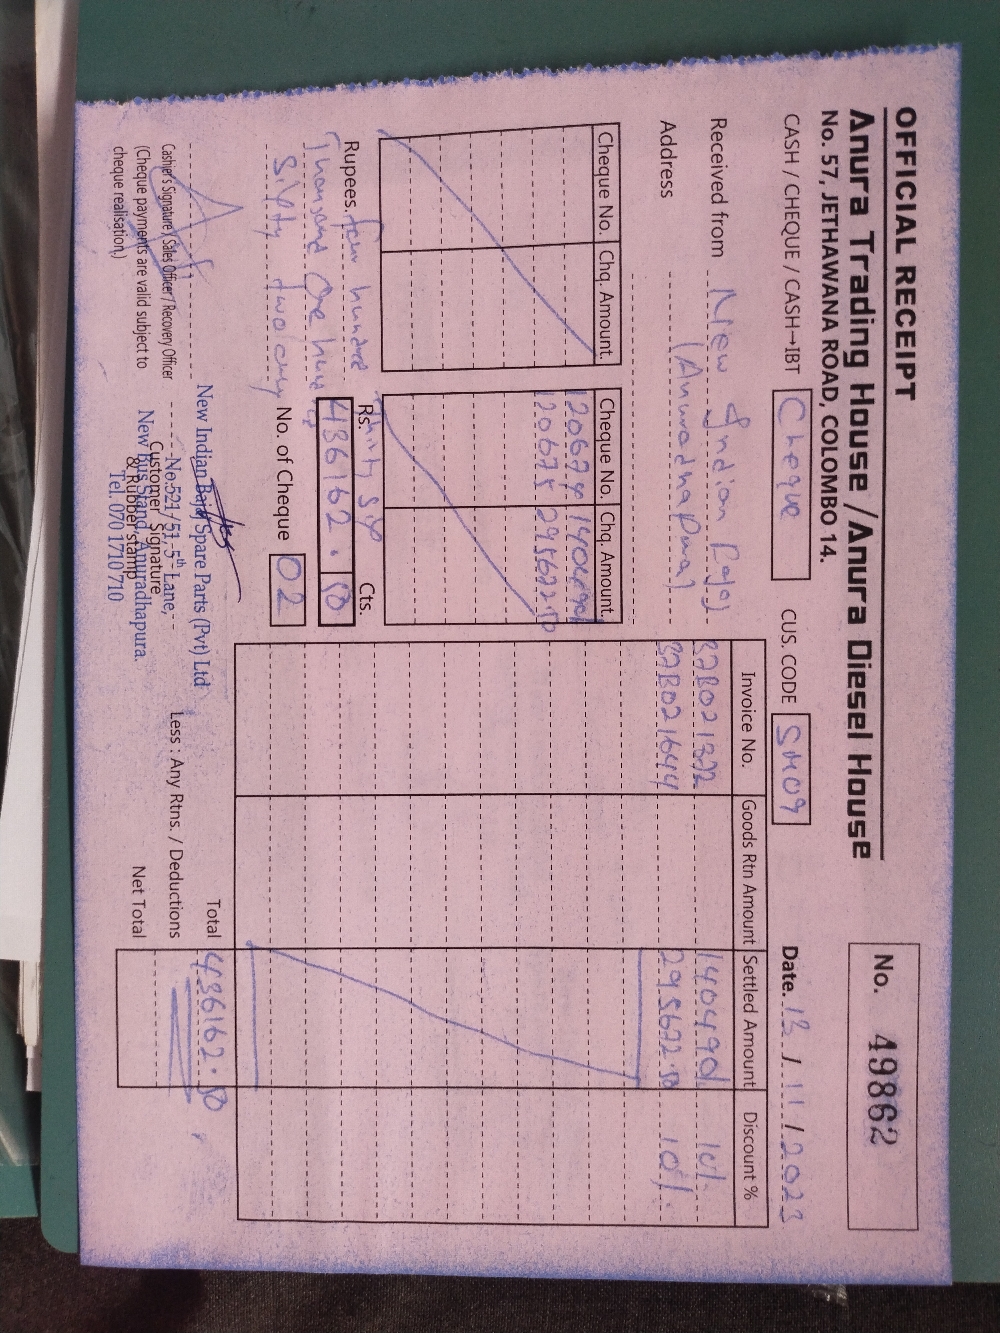 OFFICIAL RECEIPT
Anura Trading House / Anura Diesel House
No. 57, JETHAWANA ROAD, COLOMBO 14.
No. 49862
CASH / CHEQUE / CASH→IBT Cheque
CUS. CODE SM09
Date. 13 / 11 / 2023
Received from New Indian Bajaj
Address (Anuradhapura)
Cheque No. Chq. Amount
Cheque No. Chq. Amount
120674 140490/
120675 295672.50
Invoice No. Goods Rtn Amount Settled Amount Discount %
37B021372 140490/ 10%
37B021644 295672.50 10%
Rupees. Four hundred Thirty Six
Thousand One hundred
Sixty two only
Rs. Cts.
436162.50
No. of Cheque 02
Total 436162.50
Less : Any Rtns. / Deductions
Net Total
Cashier's Signature / Sales Officer / Recovery Officer
(Cheque payments are valid subject to
cheque realisation.)
Customer Signature
& Rubber stamp
New Indian Bajaj Spare Parts (Pvt) Ltd
No.521/51, 5th Lane,
New Bus Stand, Anuradhapura.
Tel. 070 1710 710